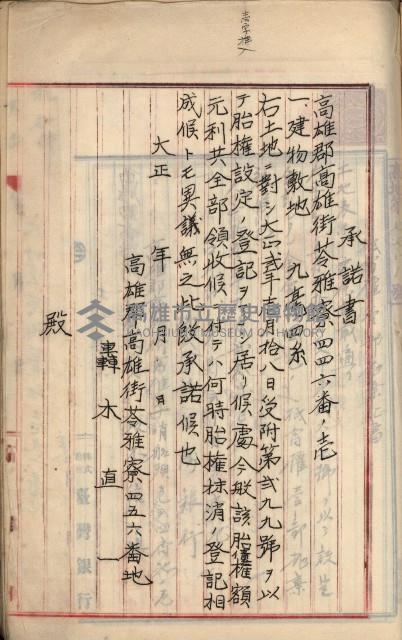 壱字挿入
承諾書
高雄郡高雄街苓雅寮四四六番ノ壱
一、建物敷地 九厘四糸
右土地ニ対シ大正弐年壱月拾八日受附第弐九九號ヲ以
テ胎権設定ノ登記ヲナシ居リ候處今般該胎権額
元利共全部領收候ニ付テハ何時胎権抹消ノ登記相
成候トモ異議無之此段承諾候也
大正 年 月 日
高雄郡高雄街苓雅寮四五六番地
轟木直一
殿
高雄市立歷史博物館
KAOHSIUNG MUSEUM OF HISTORY
臺灣銀行